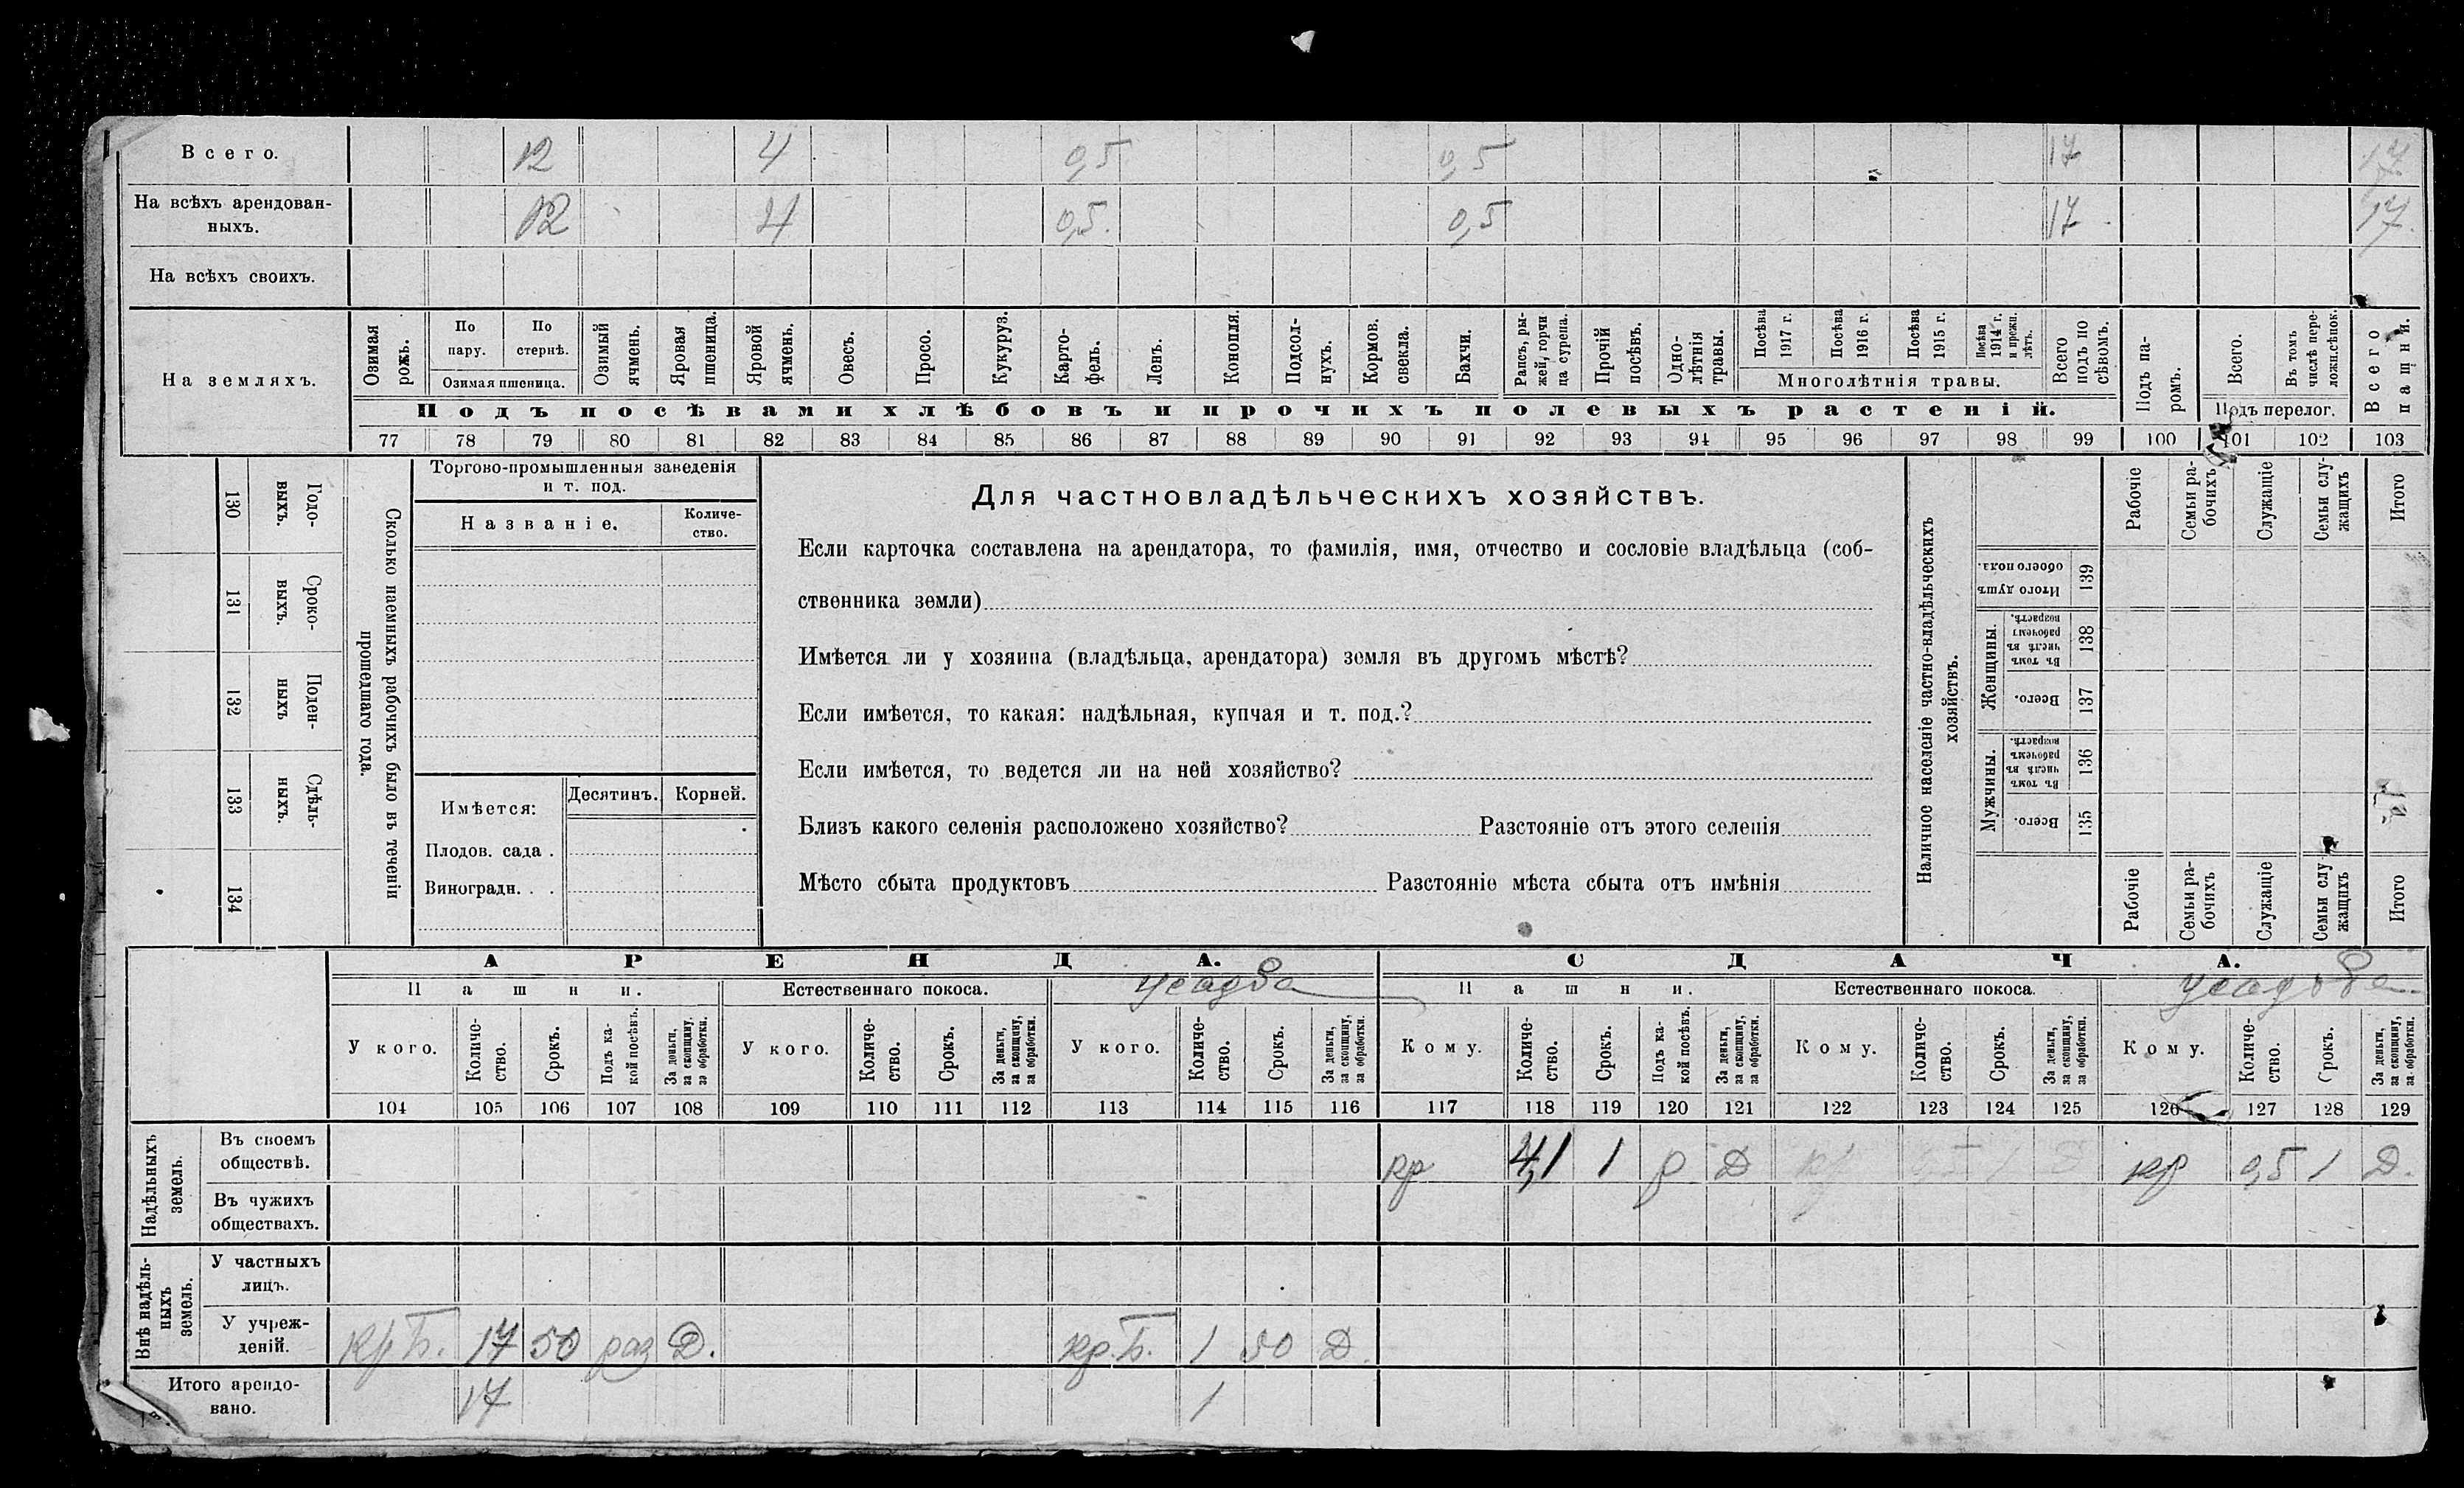 Всего. 12 4 0,5 0,5 17 17
На всѣхъ арендован-
ныхъ. 12 4 0,5. 0,5 17 17.
На всѣхъ своихъ.
На земляхъ.
Озимая рожь.
По пару.
По стернѣ.
Озимая пшеница.
Озимый ячмень.
Яровая пшеница.
Яровой ячмень.
Овесъ.
Просо.
Кукуруз.
Карто-
фель.
Ленъ.
Конопля.
Подсол-
нухъ.
Кормов.
свекла.
Бахчи.
Рапсъ, ры-
жей, горчи
ца сурепа.
Прочій
посѣвъ.
Одно-
лѣтнія
травы.
Посѣва
1917 г.
Посѣва
1916 г.
Посѣва
1915 г.
Посѣва
1914 г.
и прежн.
лѣтъ.
Многолѣтнія травы.
Всего
подъ по
сѣвомъ.
Подъ па-
ромъ.
Всего.
Въ томъ
числѣ пере-
ложн.сѣнок.
Подъ перелог.
Всего
пашни.
Подъ посѣвами хлѣбовъ и прочихъ полевыхъ растеній.
77 78 79 80 81 82 83 84 85 86 87 88 89 90 91 92 93 94 95 96 97 98 99 100 101 102 103
130
Годо-
выхъ.
131
Сроко-
выхъ.
132
Поден-
ныхъ
133
Сдѣль-
ныхъ.
134
Сколько наемныхъ рабочихъ было въ теченіи
прошедшаго года.
Торгово-промышленныя заведенія
и т. под.
Названіе.
Количе-
ство.
Имѣется: Десятинъ. Корней.
Плодов. сада .
Виноградн. . .
Для частновладѣльческихъ хозяйствъ.
Если карточка составлена на арендатора, то фамилія, имя, отчество и сословіе владѣльца (соб-
ственника земли)
Имѣется ли у хозяина (владѣльца, арендатора) земля въ другомъ мѣстѣ?
Если имѣется, то какая: надѣльная, купчая и т. под.?
Если имѣется, то ведется ли на ней хозяйство?
Близъ какого селенія расположено хозяйство? Разстояніе отъ этого селенія
Мѣсто сбыта продуктовъ Разстояніе мѣста сбыта отъ имѣнія
Наличное населеніе частно-владѣльческихъ
хозяйствъ.
Рабочіе
Семьи ра-
бочихъ
Служащіе
Семьи слу-
жащихъ
Итого
Итого душъ
обоего пола.
139
Женщины.
Въ томъ
числѣ въ
рабочемъ
возрастѣ.
138
Всего.
137
Мужчины.
Въ томъ
числѣ въ
рабочемъ
возрастѣ.
136
Всего.
135
Рабочіе
Семьи ра-
бочихъ
Служащіе
Семьи слу
жащихъ
Итого
АРЕНДА. СДАЧА.
Пашни. Естественнаго покоса. усадба Пашни. Естественнаго покоса. усадьба
У кого.
Количе-
ство.
Срокъ.
Подъ ка-
кой посѣвъ.
За деньги,
за скопщину,
за обработки.
У кого.
Количе-
ство.
Срокъ.
За деньги,
за скопщину,
за обработки.
У кого.
Количе-
ство.
Срокъ.
За деньги,
за скопщину,
за обработки.
Кому.
Количе-
ство.
Срокъ.
Подъ ка-
кой посѣвъ.
За деньги,
за скопщину,
за обработки.
Кому.
Количе-
ство.
Срокъ.
За деньги,
за скопщину,
за обработки.
Кому.
Количе-
ство.
Срокъ.
За деньги,
за скопщину,
за обработки.
104 105 106 107 108 109 110 111 112 113 114 115 116 117 118 119 120 121 122 123 124 125 126 127 128 129
Надѣльныхъ
земель.
Въ своемъ
обществѣ. кр 4,1 1 р Д кр 0,5 1 Д.
Въ чужихъ
обществахъ.
Внѣ надѣль-
ныхъ
земель.
У частныхъ
лицъ.
У учреж-
деній. Кр.Б. 17 50 раз Д. кр.Б. 1 50 Д.
Итого арендо-
вано. 17 1